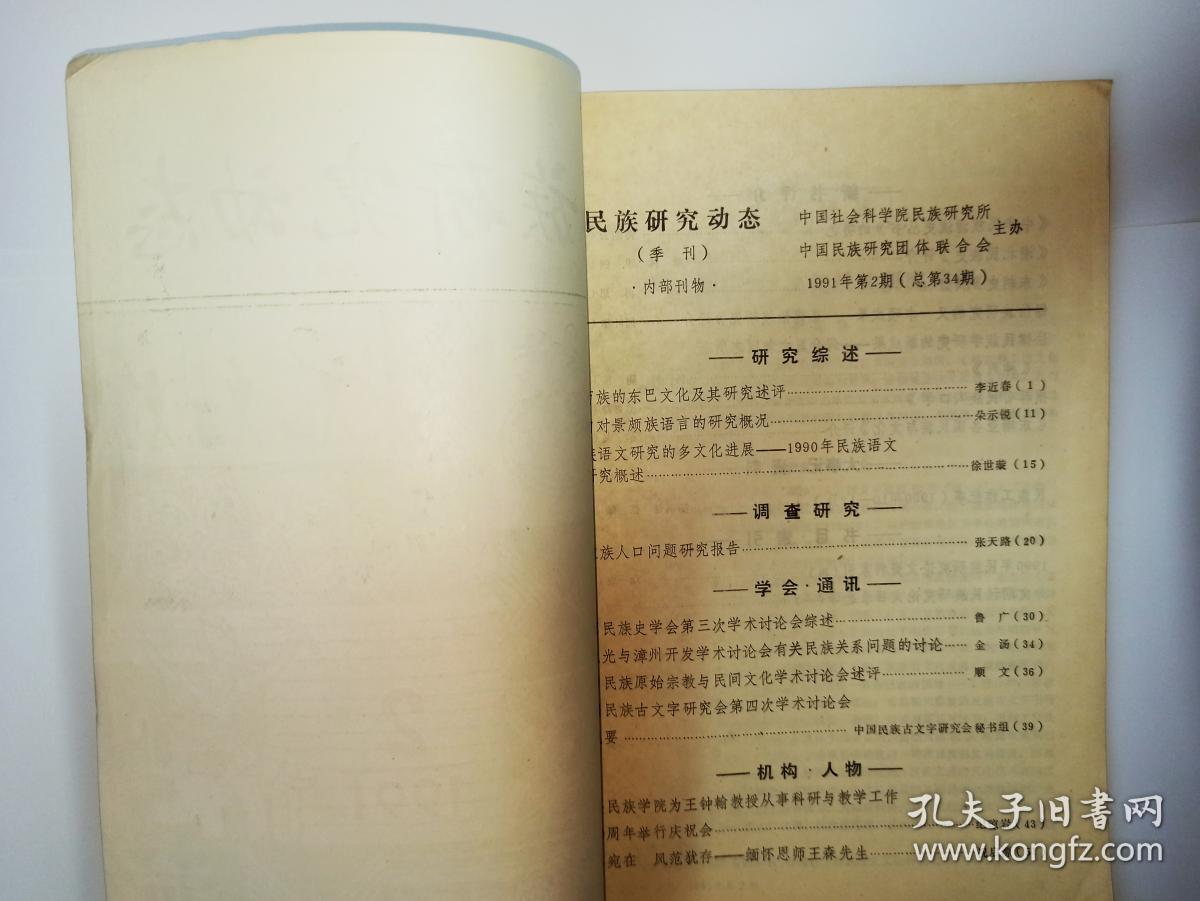 民族研究动态
(季 刊)
·内部刊物·
中国社会科学院民族研究所
中国民族研究团体联合会
主办
1991年第2期(总第34期)
——研究综述——
族的东巴文化及其研究述评……李近春(1)
对景颇族语言的研究概况……朵示锐(11)
语文研究的多文化进展——1990年民族语文
究概述……徐世璇(15)
——调查研究——
族人口问题研究报告……张天路(20)
——学会·通讯——
民族史学会第三次学术讨论会综述……鲁 广(30)
光与漳州开发学术讨论会有关民族关系问题的讨论……金 汤(34)
民族原始宗教与民间文化学术讨论会述评……顺 文(36)
民族古文字研究会第四次学术讨论会
要……中国民族古文字研究会秘书组(39)
——机构·人物——
民族学院为王钟翰教授从事科研与教学工作
周年举行庆祝会……(43)
宛在 风范犹存——缅怀恩师王森先生……
孔夫子旧书网
www.kongfz.com